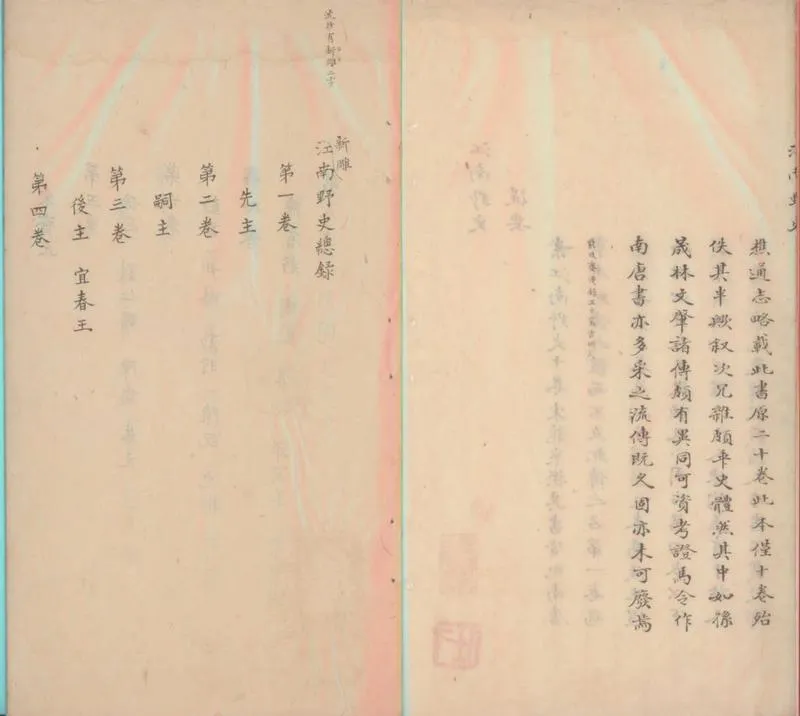 樵通志略載此書原二十卷此本僅十卷殆
佚其半歟叙次冗雜頗乖史體然其中如孫
晟林文肇諸傳頗有異同可資考證馬令作
南唐書亦多采之流傳既久固亦未可廢焉
有新雕二字
新雕
江南野史總錄
第一卷
先主
第二卷
嗣主
第三卷
後主 宜春王
第四卷